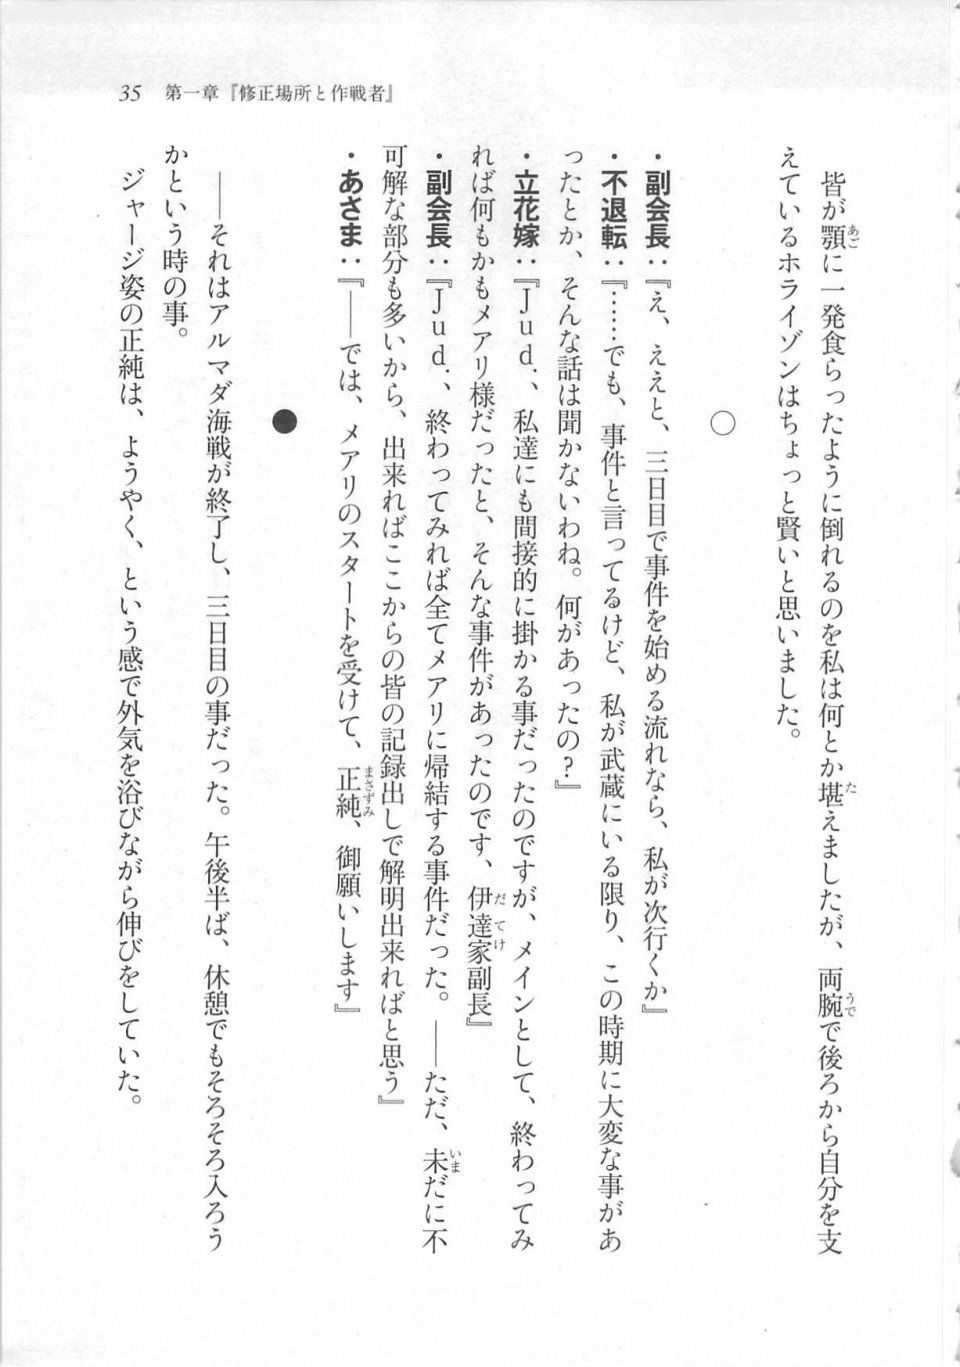 35　第一章『修正場所と作戦者』
　皆が顎に一発食らったように倒れるのを私は何とか堪えましたが、両腕で後ろから自分を支
えているホライゾンはちょっと賢いと思いました。
○
・副会長：『え、ええと、三日目で事件を始める流れなら、私が次行くか』
・不退転：『……でも、事件と言ってるけど、私が武蔵にいる限り、この時期に大変な事があ
ったとか、そんな話は聞かないわね。何があったの？』
・立花嫁：『Ｊｕｄ．、私達にも間接的に掛かる事だったのですが、メインとして、終わってみ
れば何もかもメアリ様だったと、そんな事件があったのです、伊達家副長』
・副会長：『Ｊｕｄ．、終わってみれば全てメアリに帰結する事件だった。――ただ、未だに不
可解な部分も多いから、出来ればここからの皆の記録出しで解明出来ればと思う』
・あさま：『――では、メアリのスタートを受けて、正純、御願いします』
●
　――それはアルマダ海戦が終了し、三日目の事だった。午後半ば、休憩でもそろそろ入ろう
かという時の事。
　ジャージ姿の正純は、ようやく、という感で外気を浴びながら伸びをしていた。